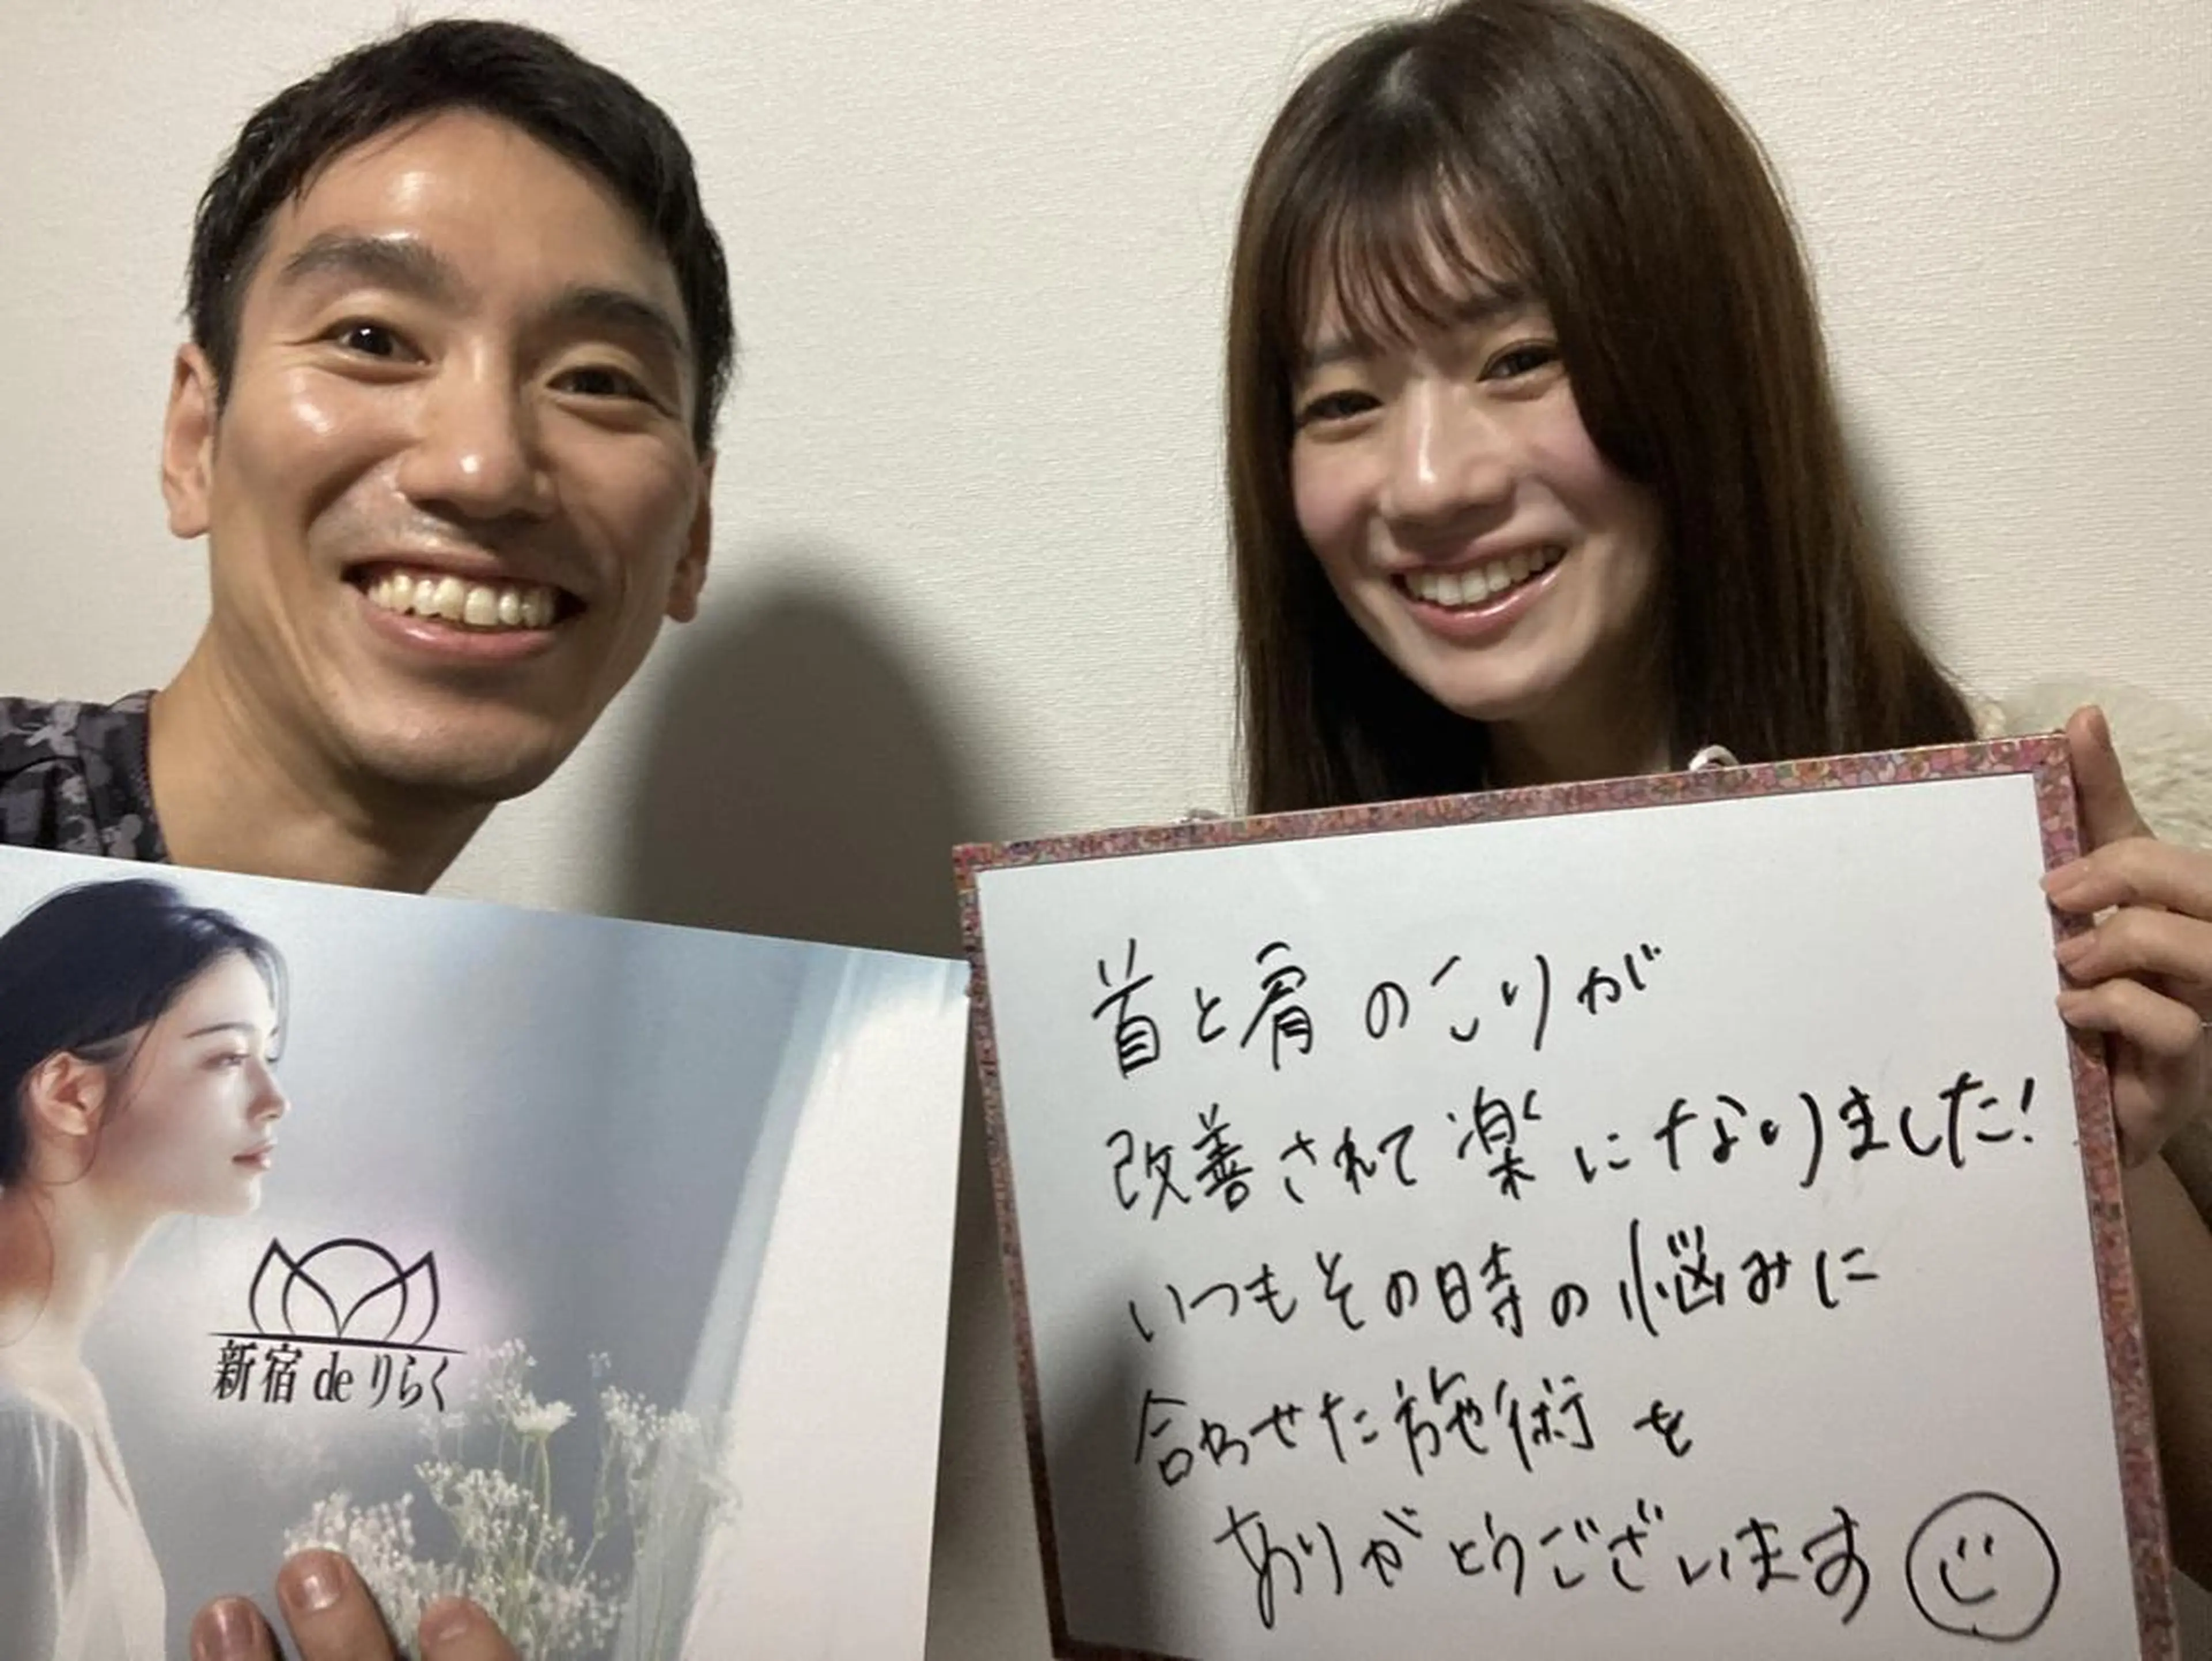 首と肩のこりが
改善されて楽になりました!
いつもその時の悩みに
合わせた施術を
ありがとうございます
新宿 de りらく